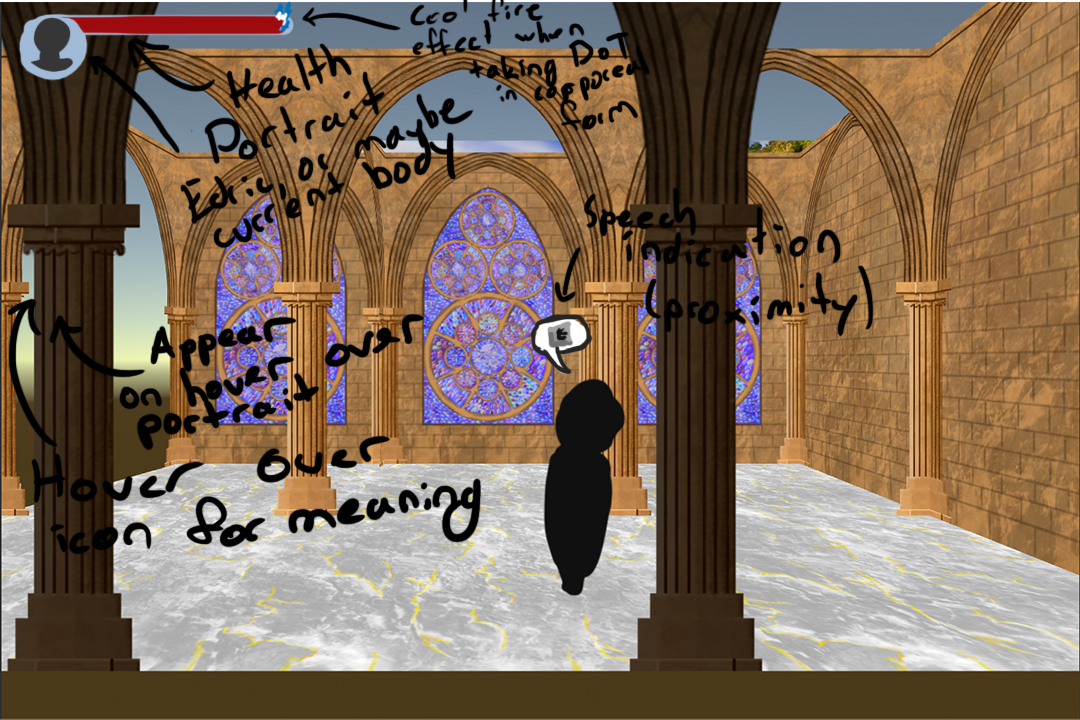 Cool fire
effect when
taking DoT
in corporeal
form
Health
Portrait
Edric, or maybe
current body
Speech
indication
(proximity)
E
Appear
on hover over
portrait
Hover over
icon for meaning